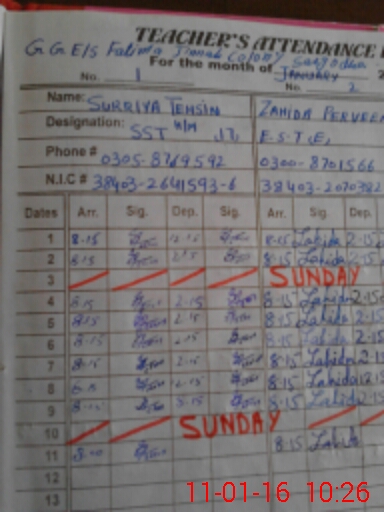 TEACHER'S ATTENDANCE
G G E/S Fatima Jinnah Colony Sargodha
For the month of January 2
No. 1 No. 2
Name: SURRIYA TEHSIN ZAHIDA PERVEEN
Designation: SST H/M E.S.T (E)
Phone # 0305-8769592 0300-8701566
N.I.C # 38403-2641593-6 38403-2070382
Dates Arr. Sig. Dep. Sig. Arr. Sig. Dep.
1 8-15 12-15 8-15 Zahida 2-15
2 8-15 2-15 8-15 Zahida 2-15
3 SUNDAY
4 8-15 2-15 8-15 Zahida 2-15
5 8-15 2-15 8-15 Zahida 2-15
6 8-15 2-15 8-15 Zahida 2-15
7 8-15 2-15 8-15 Zahida 2-15
8 8-15 2-15 8-15 Zahida 12-15
9 8-15 8-15 Zahida 2-15
10 SUNDAY
11 8-15 Zahida
12
13
11-01-16 10:26